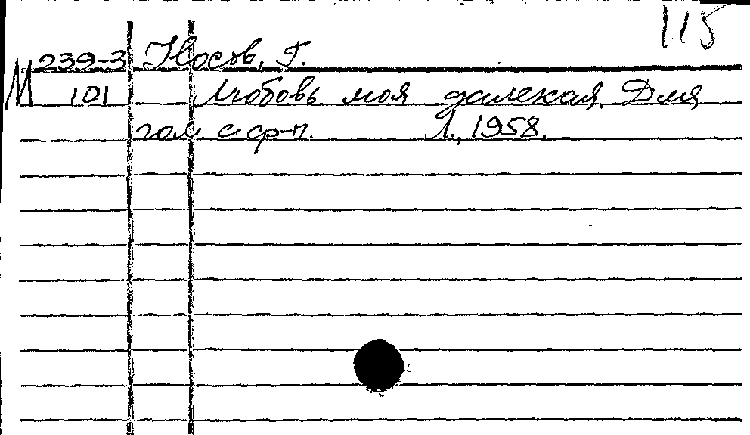 115
М 239-3 Носов, Г.
101 Любовь моя далекая. Для
гол. с ф-п. Л., 1958.